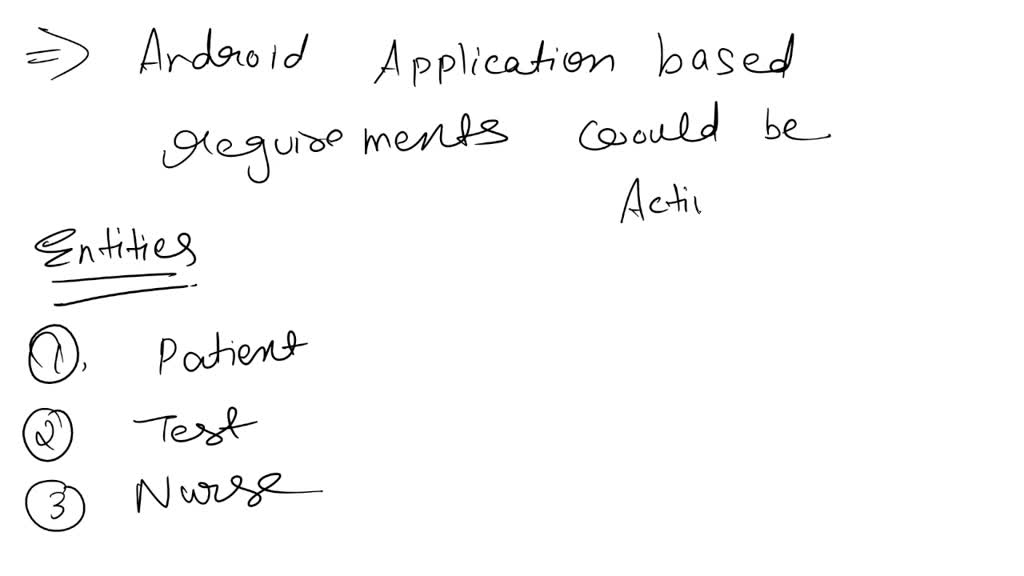 ⇒ Android Application based
requirements would be
Acti
Entities
1. Patient
2 Test
3 Nurse